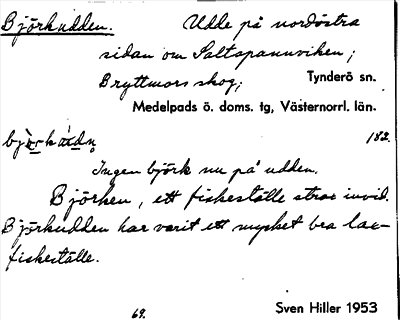 Björkudden. Udde på nordöstra
sidan om Saltpannviken;
Bryttmors skog; Tynderö sn.
Medelpads ö. doms. tg, Västernorrl. län.
182.
Ingen björk nu på udden.
Björken, ett fiskeställe strax invid.
Björkudden har varit ett mycket bra lax-
fiskeställe.
69. Sven Hiller 1953